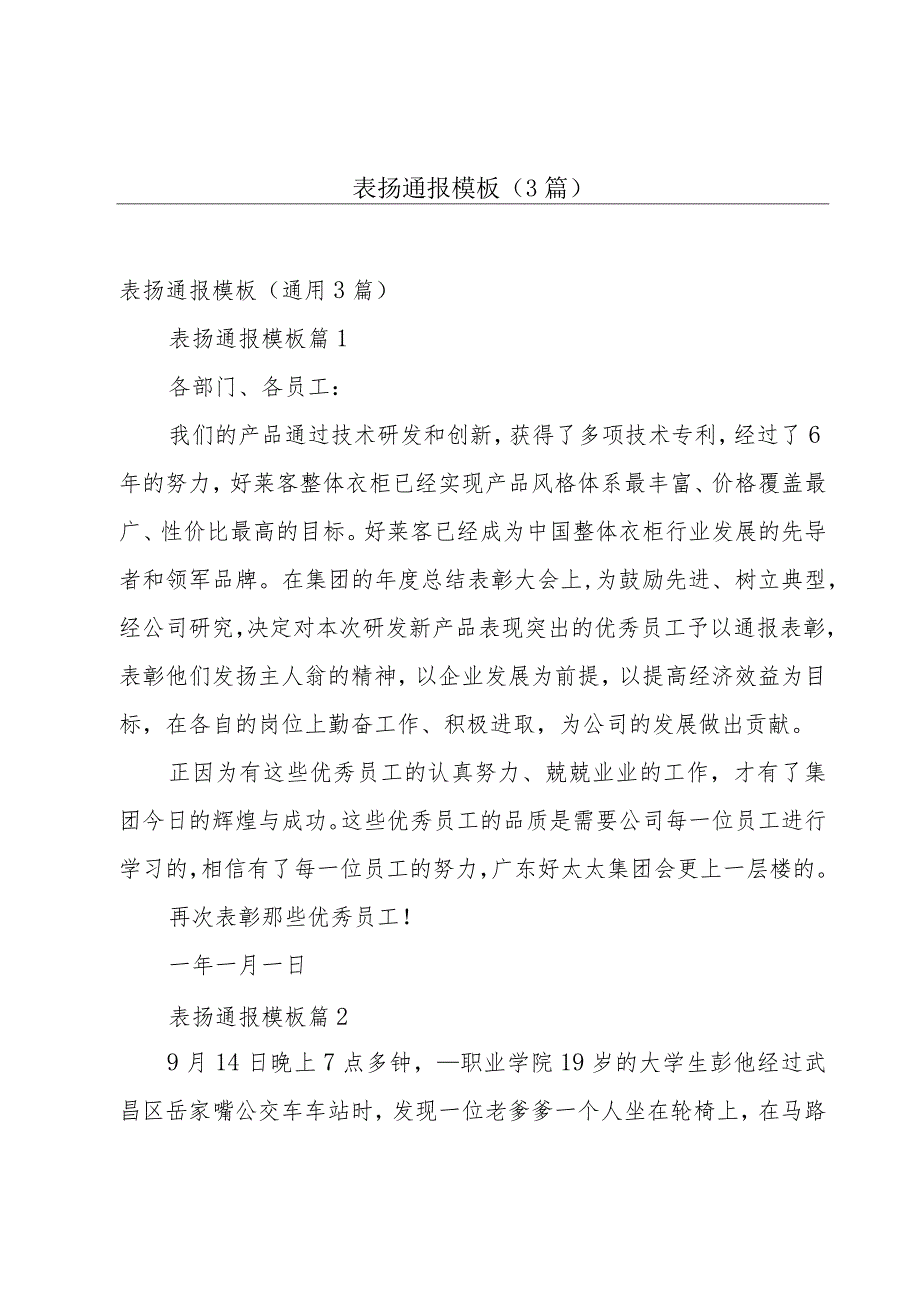 表扬通报模板（3 篇）
表扬通报模板（通用 3 篇）
表扬通报模板篇 1
各部门、各员工：
我们的产品通过技术研发和创新，获得了多项技术专利，经过了 6
年的努力，好莱客整体衣柜已经实现产品风格体系最丰富、价格覆盖最
广、性价比最高的目标。好莱客已经成为中国整体衣柜行业发展的先导
者和领军品牌。在集团的年度总结表彰大会上,为鼓励先进、树立典型，
经公司研究，决定对本次研发新产品表现突出的优秀员工予以通报表彰，
表彰他们发扬主人翁的精神，以企业发展为前提，以提高经济效益为目
标，在各自的岗位上勤奋工作、积极进取，为公司的发展做出贡献。
正因为有这些优秀员工的认真努力、兢兢业业的工作，才有了集
团今日的辉煌与成功。这些优秀员工的品质是需要公司每一位员工进行
学习的，相信有了每一位员工的努力，广东好太太集团会更上一层楼的。
再次表彰那些优秀员工！
一年一月一日
表扬通报模板篇 2
9 月 14 日晚上 7 点多钟，—职业学院 19 岁的大学生彭他经过武
昌区岳家嘴公交车车站时，发现一位老爹爹一个人坐在轮椅上，在马路